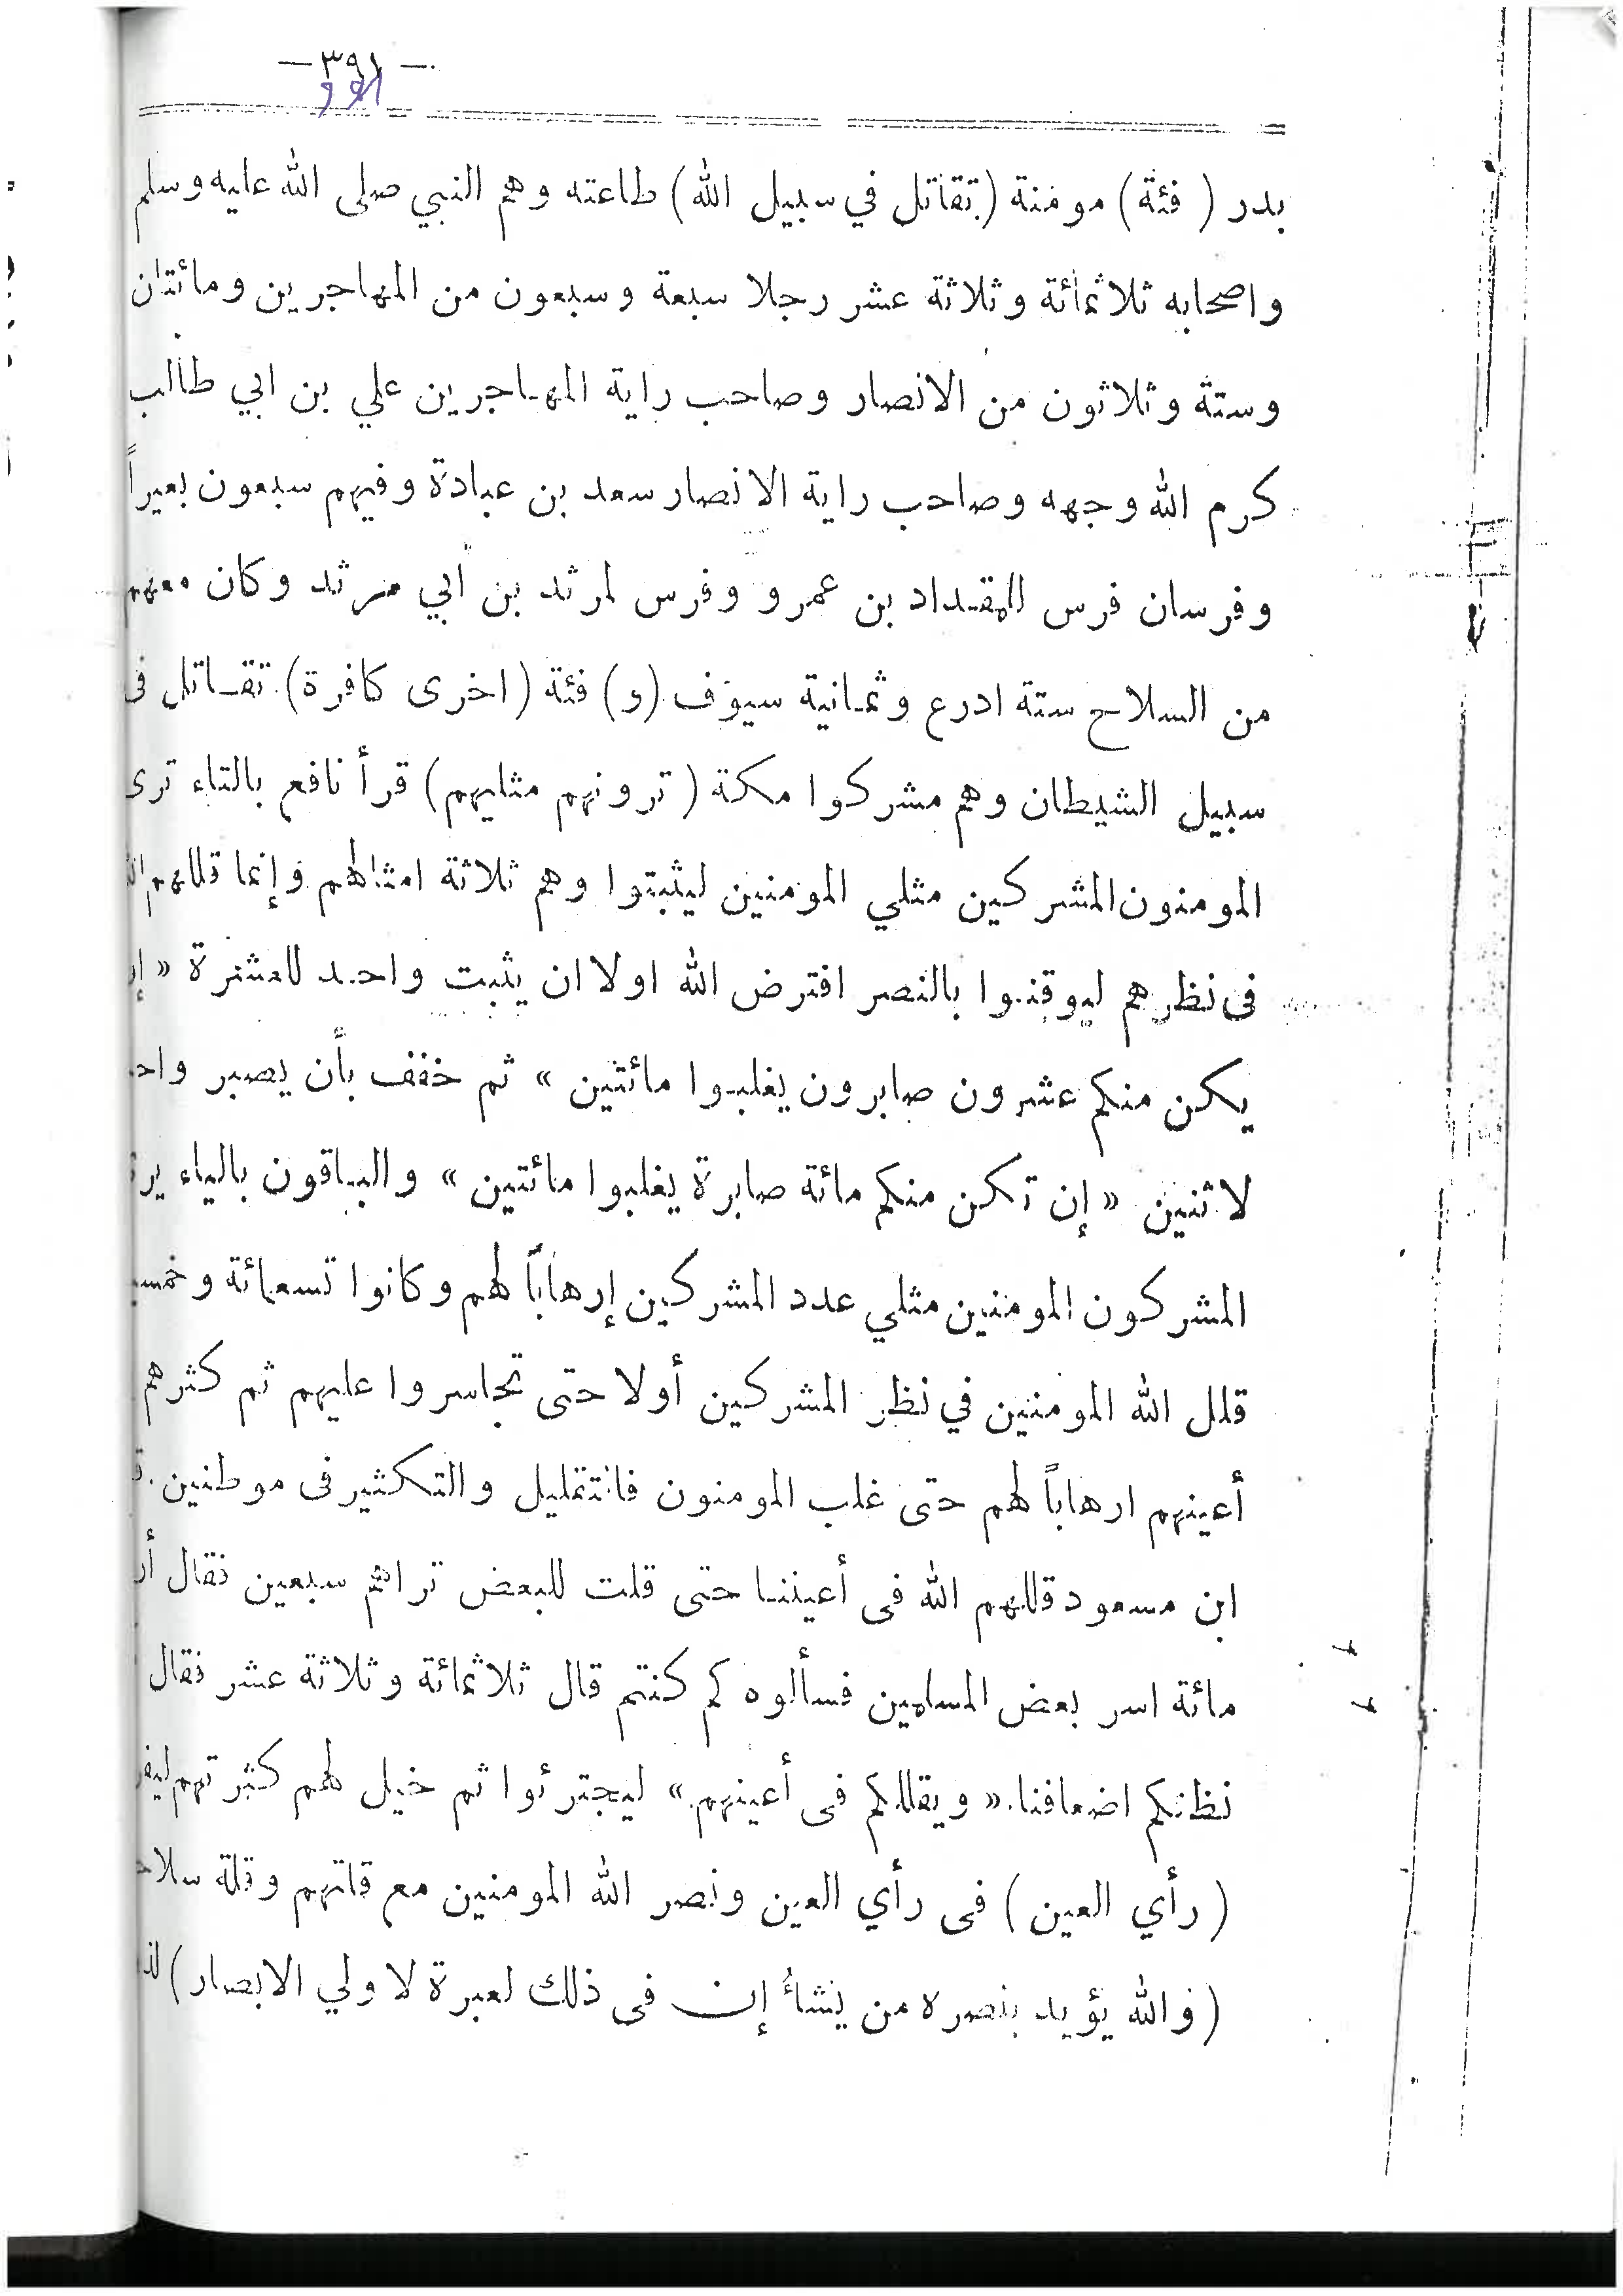 — ٣٩١ —
بدر ( فئة ) مومنة ( تقاتل في سبيل الله ) طاعته وهم النبي صلى الله عليه وسلم
واصحابه ثلاثمائة وثلاثة عشر رجلا سبعة وسبعون من المهاجرين ومائتان
وستة وثلاثون من الانصار وصاحب راية المهاجرين علي بن ابي طالب
كرم الله وجهه وصاحب راية الانصار سعد بن عبادة وفيهم سبعون بعيراً
وفرسان فرس للمقداد بن عمرو وفرس لمرثد بن أبي مرثد وكان معهم
من السلاح ستة ادرع وثمانية سيوف (و) فئة ( اخرى كافرة ) تقاتل فى
سبيل الشيطان وهم مشركوا مكة ( ترونهم مثليهم ) قرأ نافع بالتاء ترى
المومنون المشركين مثلي المومنين ليثبتوا وهم ثلاثة امثالهم وإنما قللهم
فى نظرهم ليوقنوا بالنصر افترض الله اولا ان يثبت واحد للعشرة « إن
يكن منكم عشرون صابرون يغلبوا مائتين » ثم خفف بأن يصبر واحد
لاثنين « إن تكن منكم مائة صابرة يغلبوا مائتين » والباقون بالياء
المشركون المومنين مثلي عدد المشركين إرهاباً لهم وكانوا تسعمائة
قلل الله المومنين في نظر المشركين أولا حتى تجاسروا عليهم ثم كثرهم
أعينهم ارهاباً لهم حتى غلب المومنون فالتقليل والتكثير فى موطنين .
ابن مسعود قللهم الله فى أعيننا حتى قلت للبعض تراهم سبعين فقال
مائة اسر بعض المسلمين فسألوه كم كنتم قال ثلاثمائة وثلاثة عشر فقال
نظنكم اضعافنا « ويقللكم فى أعينهم » ليجترئوا ثم خيل لهم كثرتهم
( رأي العين ) فى رأي العين ونصر الله المومنين مع قلتهم وقلة
( والله يؤيد بنصره من يشاءُ إن فى ذلك لعبرة لاولي الابصار )